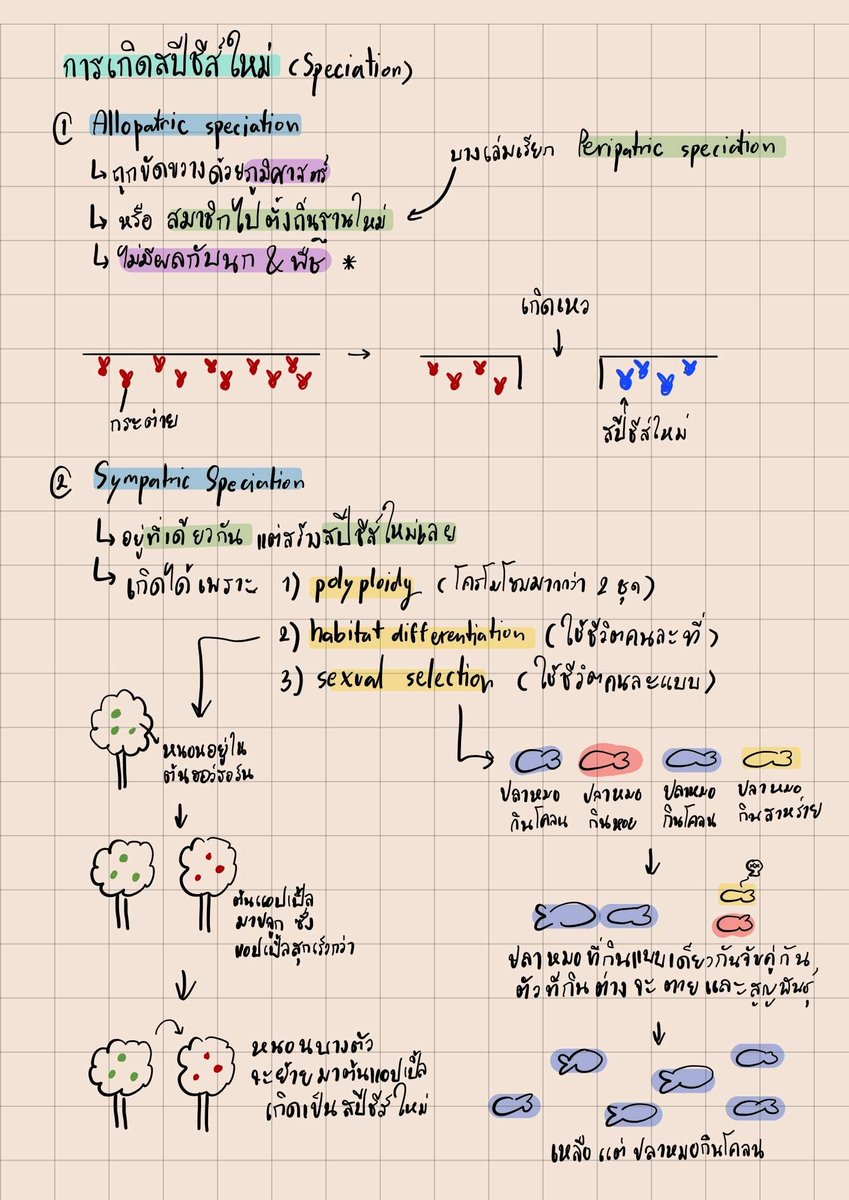 การเกิดสปีชีส์ใหม่ (Speciation)
① Allopatric speciation
↳ ถูกขัดขวางด้วยภูมิศาสตร์
↳ หรือ สมาชิกไปตั้งถิ่นฐานใหม่
บางเล่มเรียก Peripatric speciation
↳ ไม่มีผลกับนก & พืช *
เกิดเหว
กระต่าย
สปีชีส์ใหม่
② Sympatric Speciation
↳ อยู่ที่เดียวกัน แต่สร้างสปีชีส์ใหม่เลย
↳ เกิดได้เพราะ 1) polyploidy (โครโมโซมมากกว่า 2 ชุด)
2) habitat differentiation (ใช้ชีวิตคนละที่)
3) sexual selection (ใช้ชีวิตคนละแบบ)
หนอนอยู่ใน
ต้นฮอว์ธอร์น
ต้นแอปเปิ้ล
มาปลูก ซึ่ง
แอปเปิ้ลสุกเร็วกว่า
หนอนบางตัว
จะย้ายมาต้นแอปเปิ้ล
เกิดเป็นสปีชีส์ใหม่
ปลาหมอ
กินโคลน
ปลาหมอ
กินหอย
ปลาหมอ
กินโคลน
ปลาหมอ
กินสาหร่าย
ปลาหมอที่กินแบบเดียวกันจับคู่กัน
ตัวที่กินต่างจะตายและสูญพันธุ์
เหลือแต่ปลาหมอกินโคลน